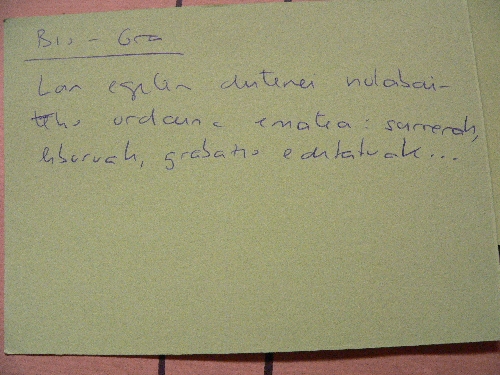 Bio - Gra
Lan egiten dutenei nolabai-
teko ordaina ematea: sarrerak,
liburuak, grabazio editatuak...